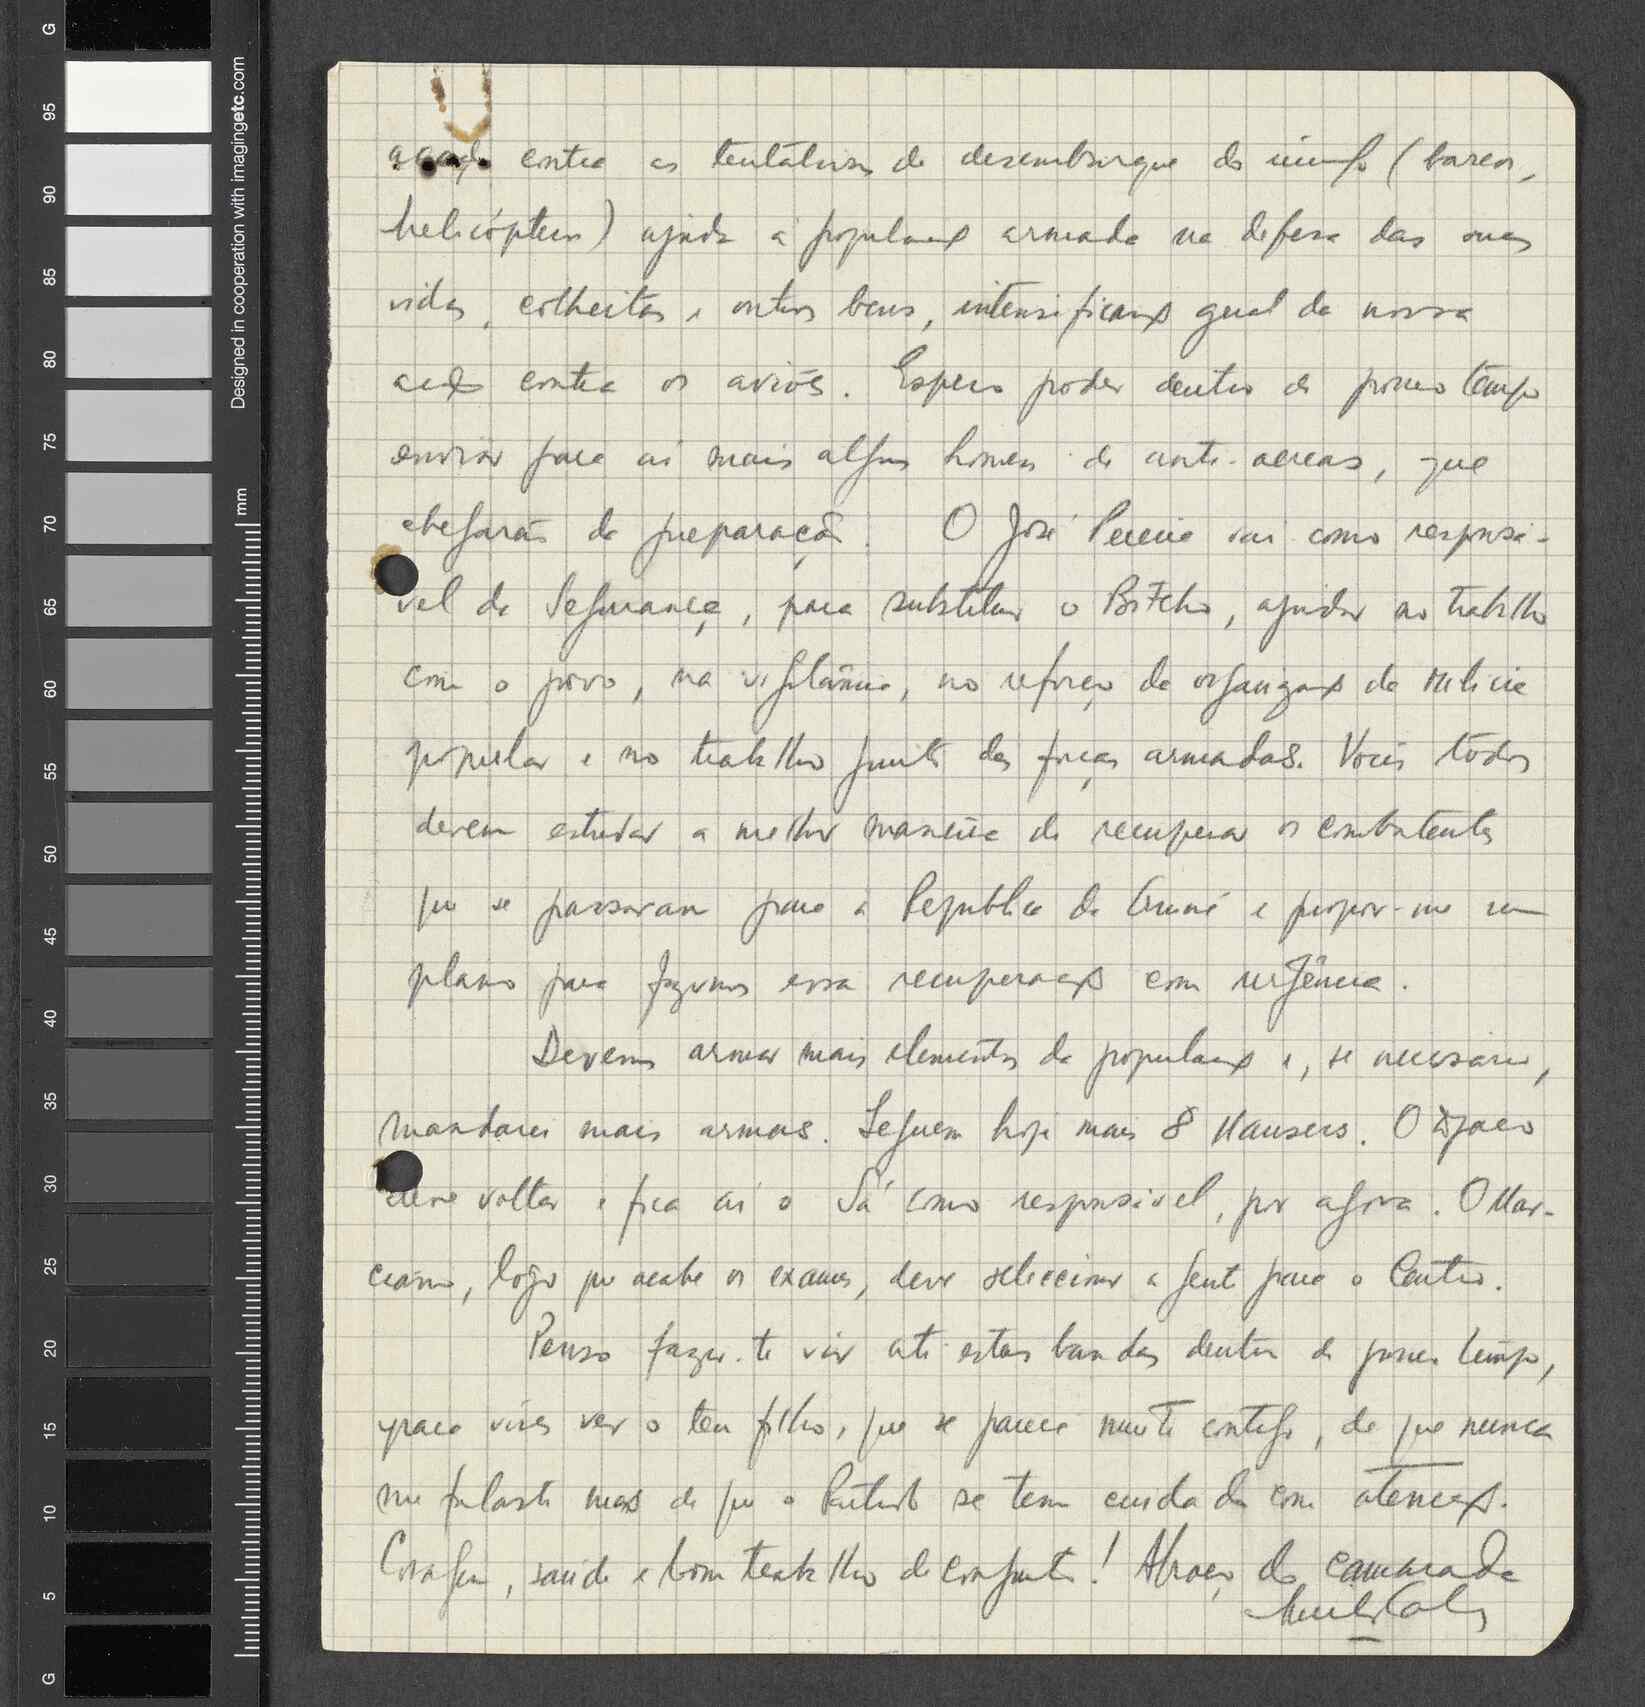 acção contra as tentativas de desembarque do inimigo (barcos,
helicópteros) ajuda à população armada na defesa das suas
vidas, colheitas e outros bens, intensificação geral da nossa
acção contra os aviões. Espero poder dentro de pouco tempo
enviar para aí mais alguns homens de anti-aéreas, que
chegarão da preparação. O José Pereira vai como responsá-
vel da Segurança, para substituir o Botelho, ajudar no trabalho
com o povo, na vigilância, no reforço da organização da milícia
popular e no trabalho junto das forças armadas. Vocês todos
devem estudar a melhor maneira de recuperar os combatentes
que se passaram para a República da Guiné e propor-me um
plano para fazermos essa recuperação com urgência.
Devemos armar mais elementos da população e, se necessário,
mandarei mais armas. Seguem hoje mais 8 Mausers. O
deve voltar e fica aí o Sá como responsável, por agora. O Mar-
ciano, logo que acabe os exames, deve seleccionar a gente para o Centro.
Penso fazer-te vir até estas bandas dentro de pouco tempo,
para vires ver o teu filho, que se parece muito contigo, de que nunca
me falaste mas de que o Partido se tem cuidado com atenção.
Coragem, saúde e bom trabalho de conjunto! Abraço do camarada
Amílcar Cabral
G
95
90
85
80
75
70
65
60
55
50
45
40
35
30
25
20
15
10
5
G
Designed in cooperation with imagingetc.com
mm